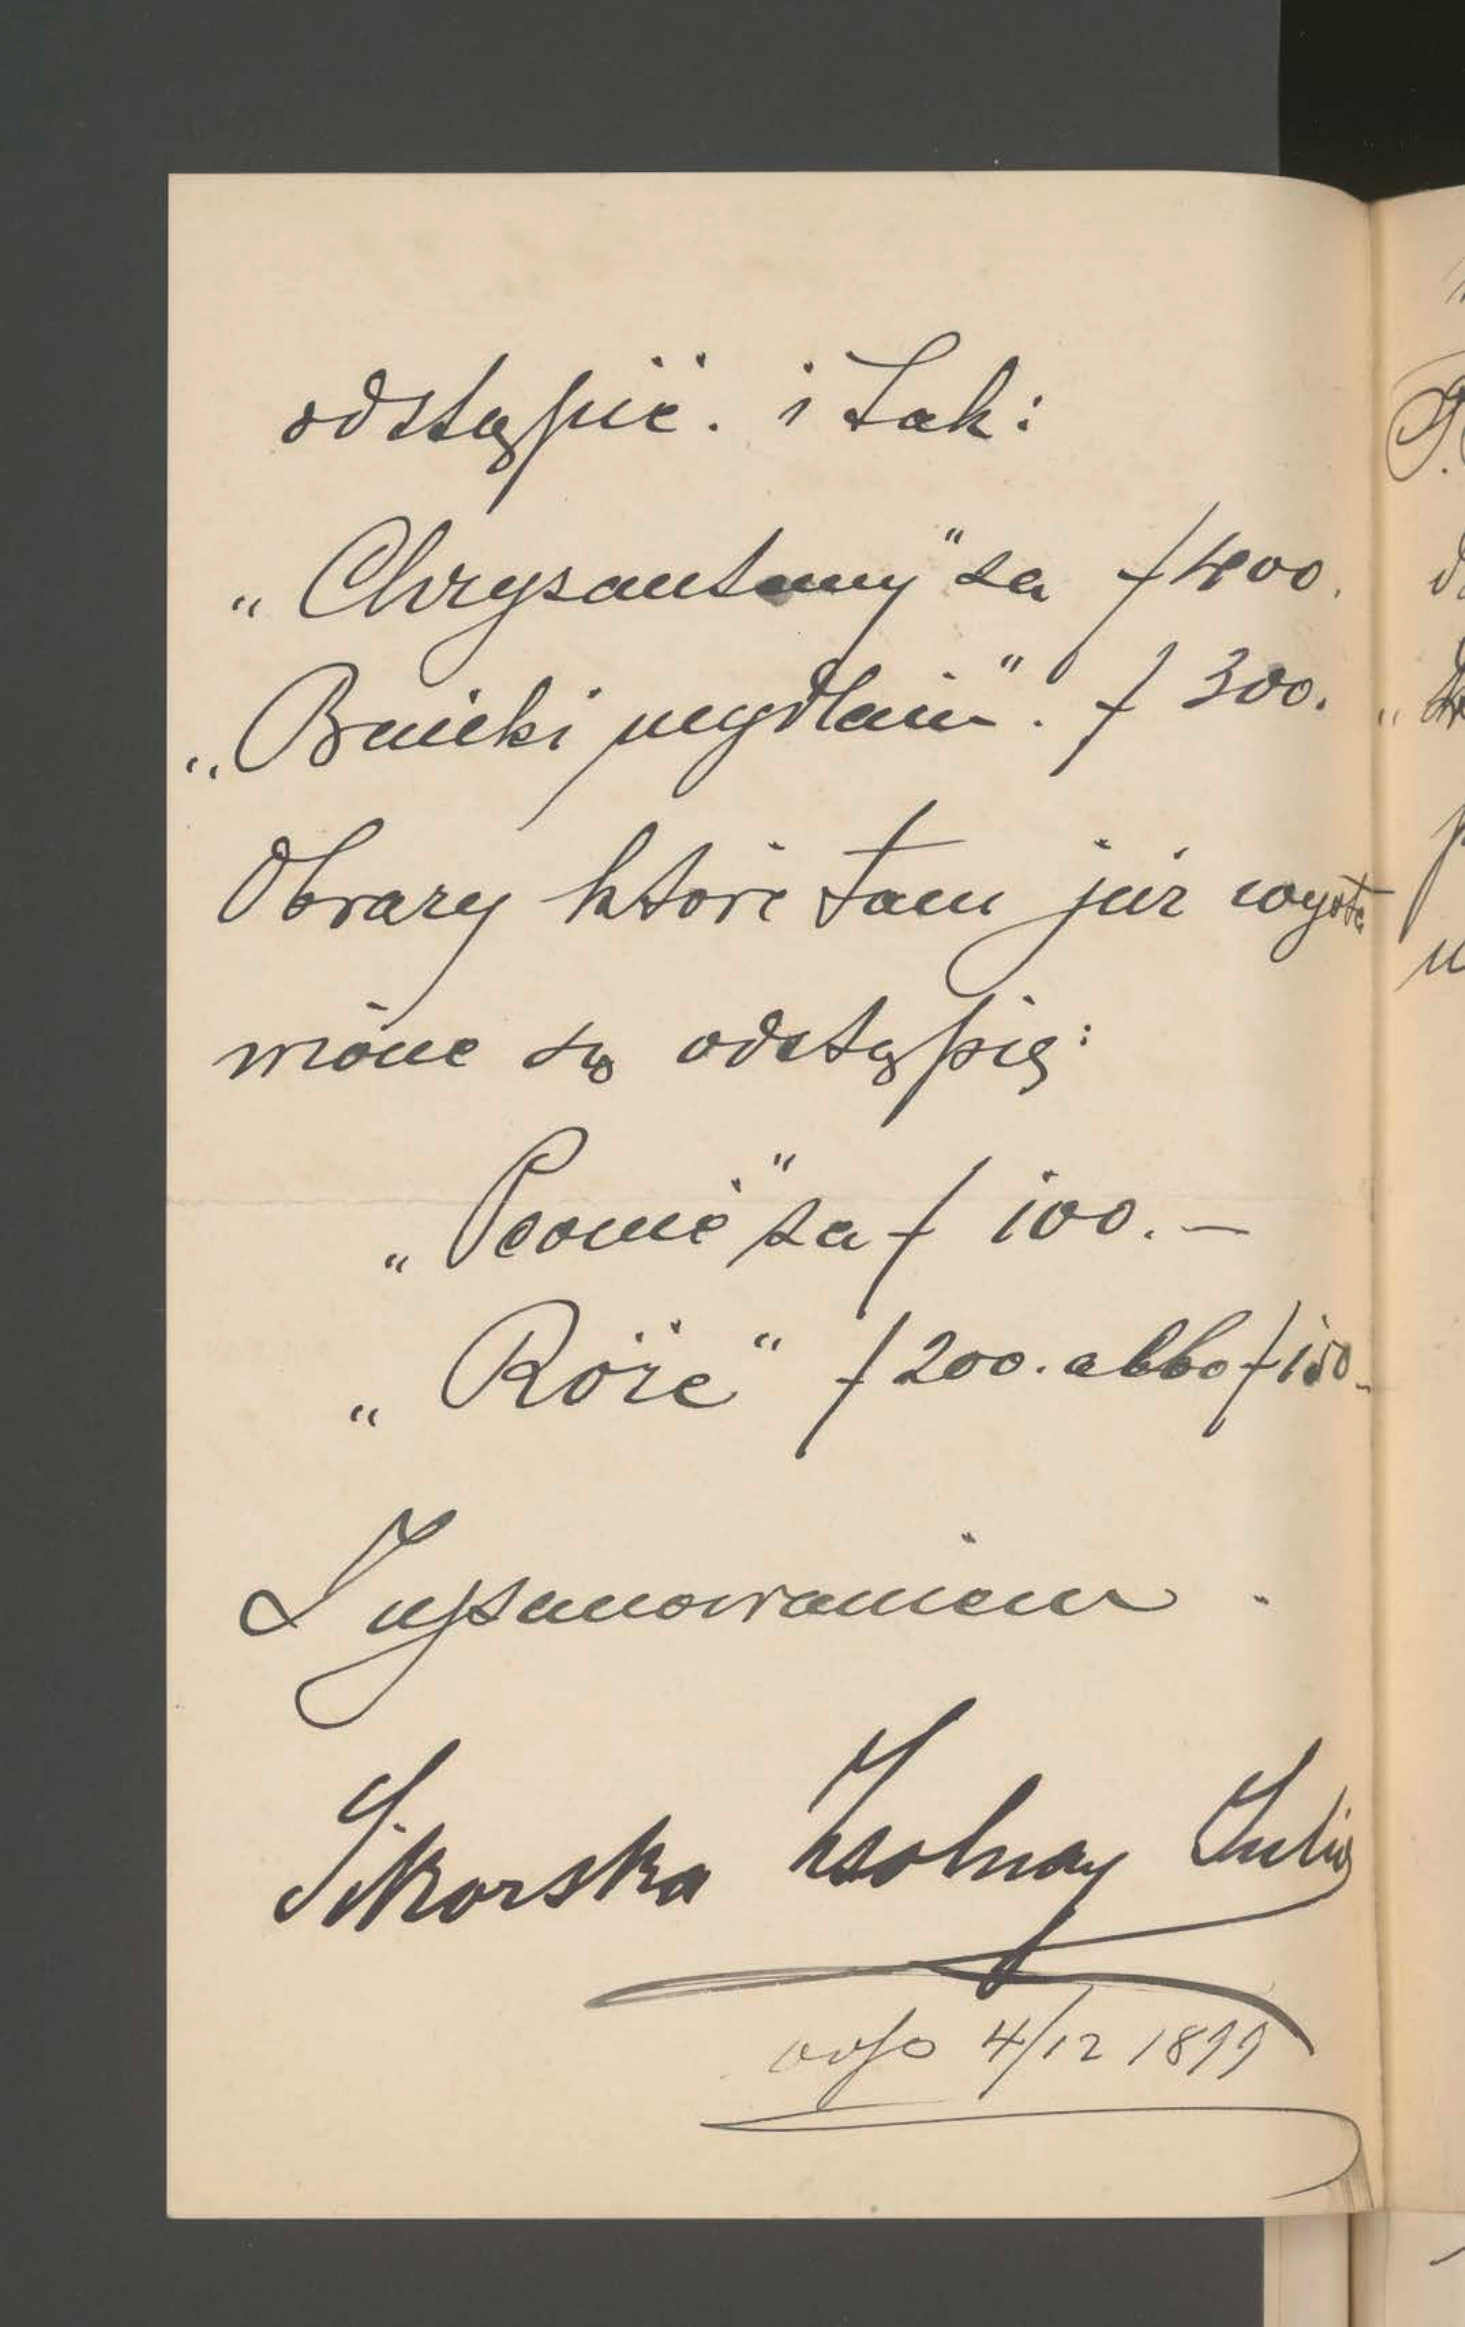 odstąpić. i tak:
„Chrysantemy" za f 400.
„Bańki mydlani". f 300.
Obrazy które tam już wysta
wióne są odstąpię:
„Peonie" za f 100.—
„Róże" f 200. albo f 150
Z uszanowaniem.
Sikorska Zsolnay Julia
odp 4/12 1899